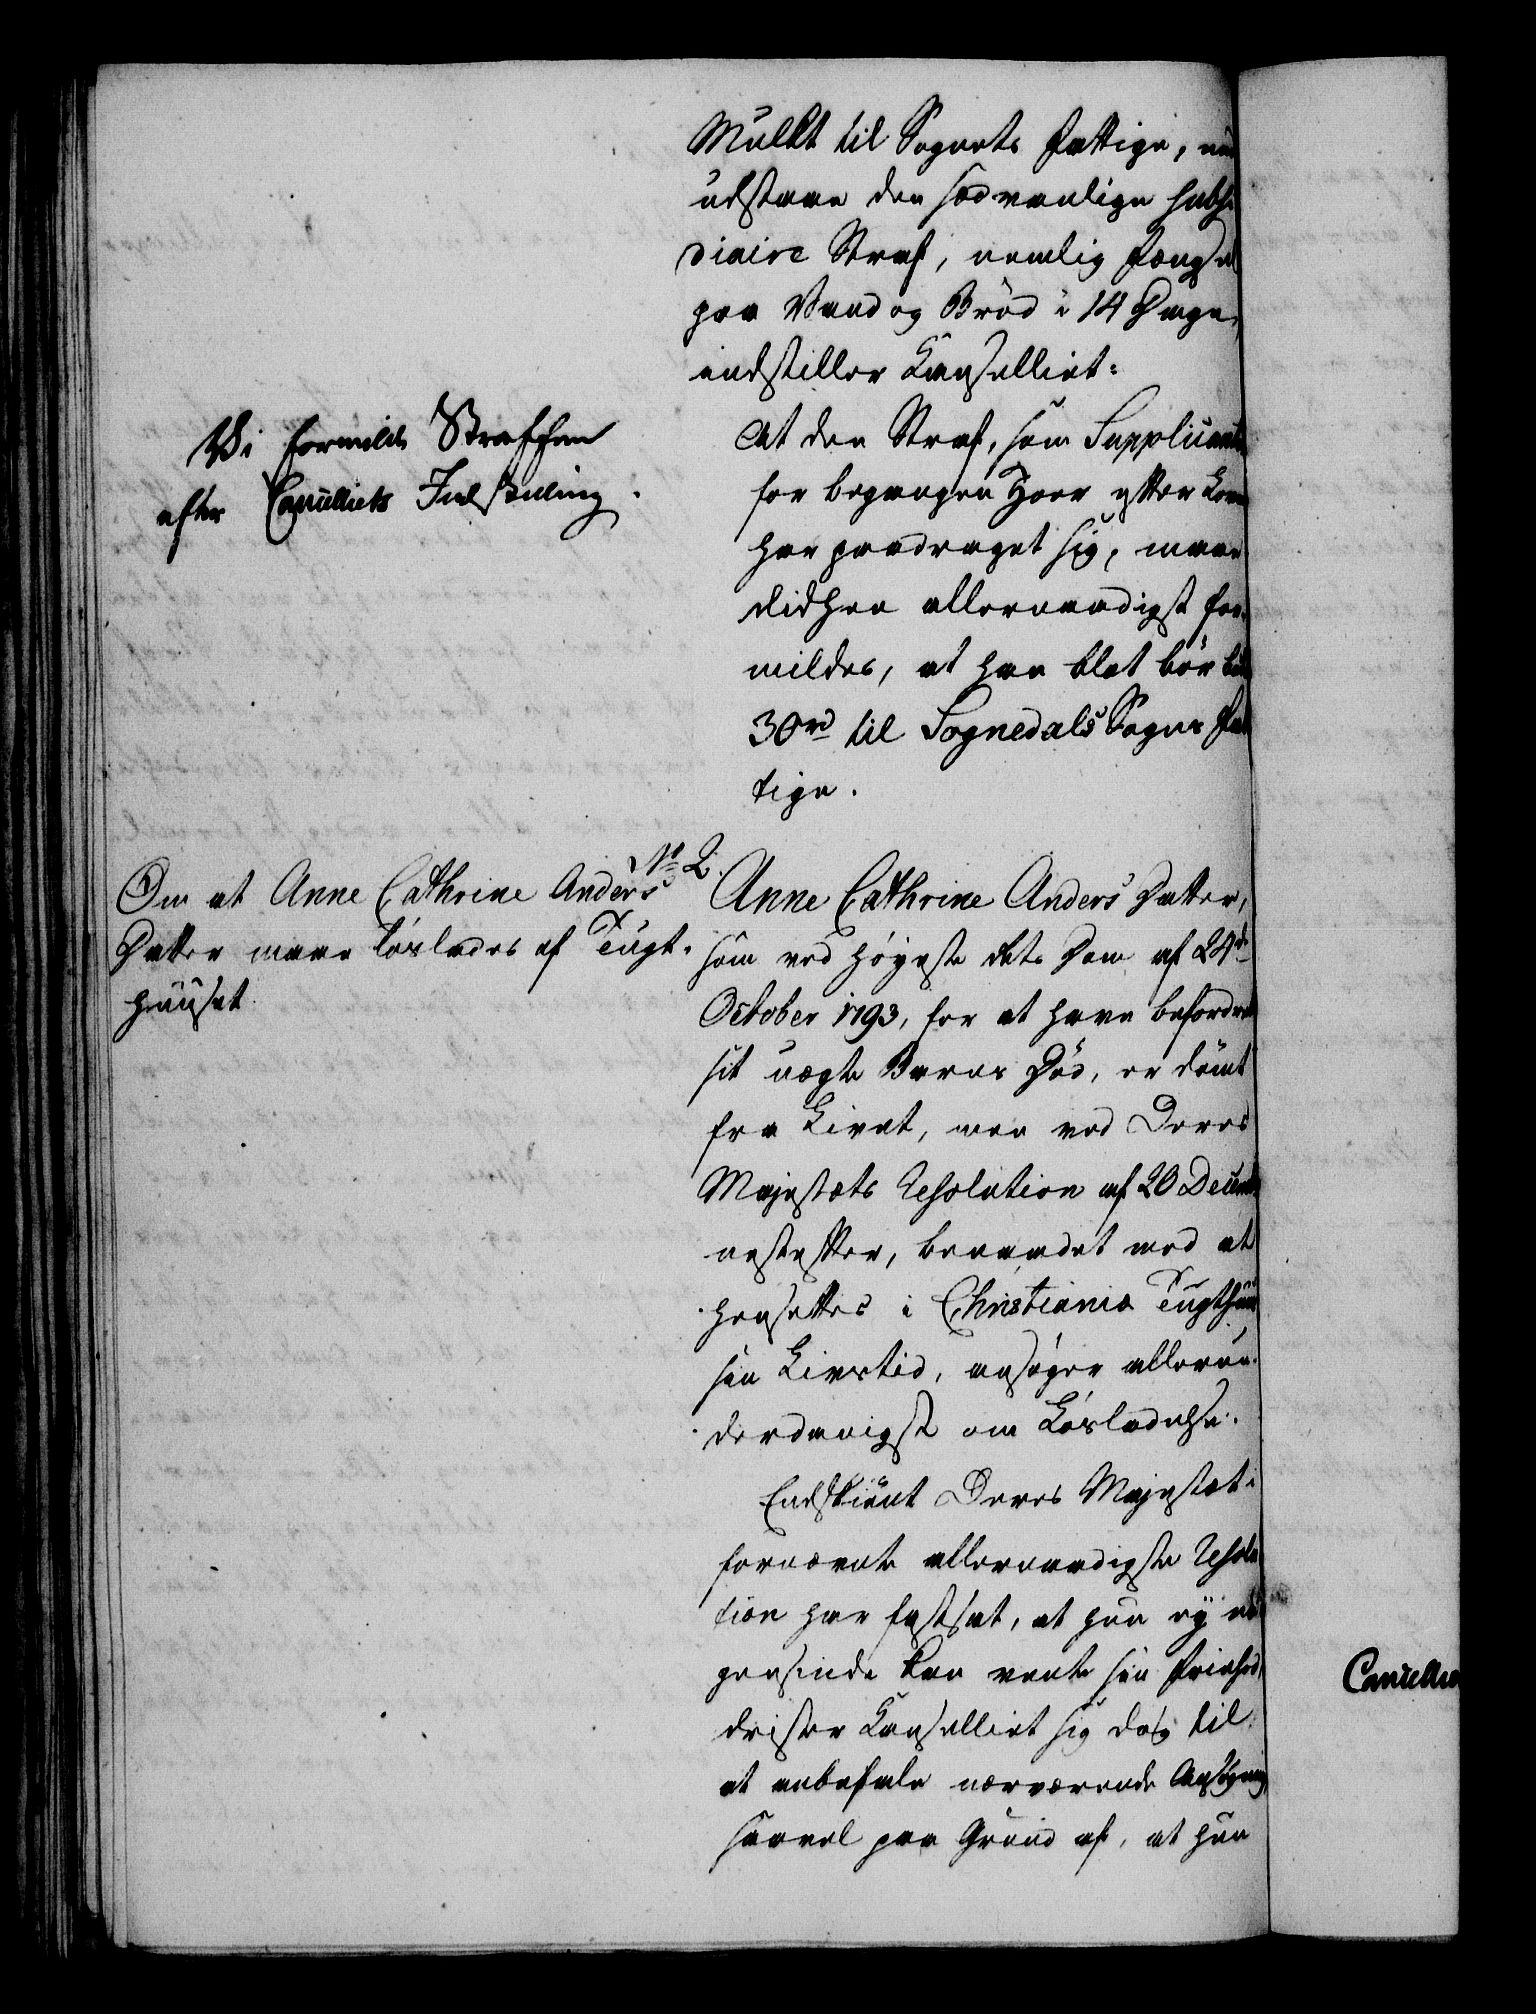 Mulkt til Sognets Fattige, end
udstaae den sædvanlige subsi
diaire Straf, nemlig Fængsel
paa Vand og Brød i 14 Dage,
indstiller Kanselliet:
Vi formilde Straffen
efter Cancelliets Indstilling.
At den Straf, som Supplicanten
for begangen Hoer efter Loven
har paadraget sig, maae
didhen allernaadigst for-
mildes, at han blot bør bøde
30 rd til Sognedals Sogns Fat
tige.
No 2.
Om at Anne Cathrine Anders
Datter maae løslades af Tugt-
huuset
Anne Cathrine Anders Datter,
som ved Høyeste Rets Dom af 24de
October 1793, for at have befordret
sit uægte Barns Død, er dømt
fra Livet, men ved Deres
Majestæts Resolution af 20 December
nestefter, benaadet med at
hensættes i Christiania Tugthuus
sin Livstid, ansøger allerun-
derdanigst om Løsladelse.
Endskiønt Deres Majestæt i
fornævnte allernaadigste Resolu
tion har fastsat, at hun ey no
gensinde kan vente sin Friehed,
drister Kanselliet sig dog til
at anbefale nærværende Ansøgning,
saavel paa Grund af, at hun
Cancellie